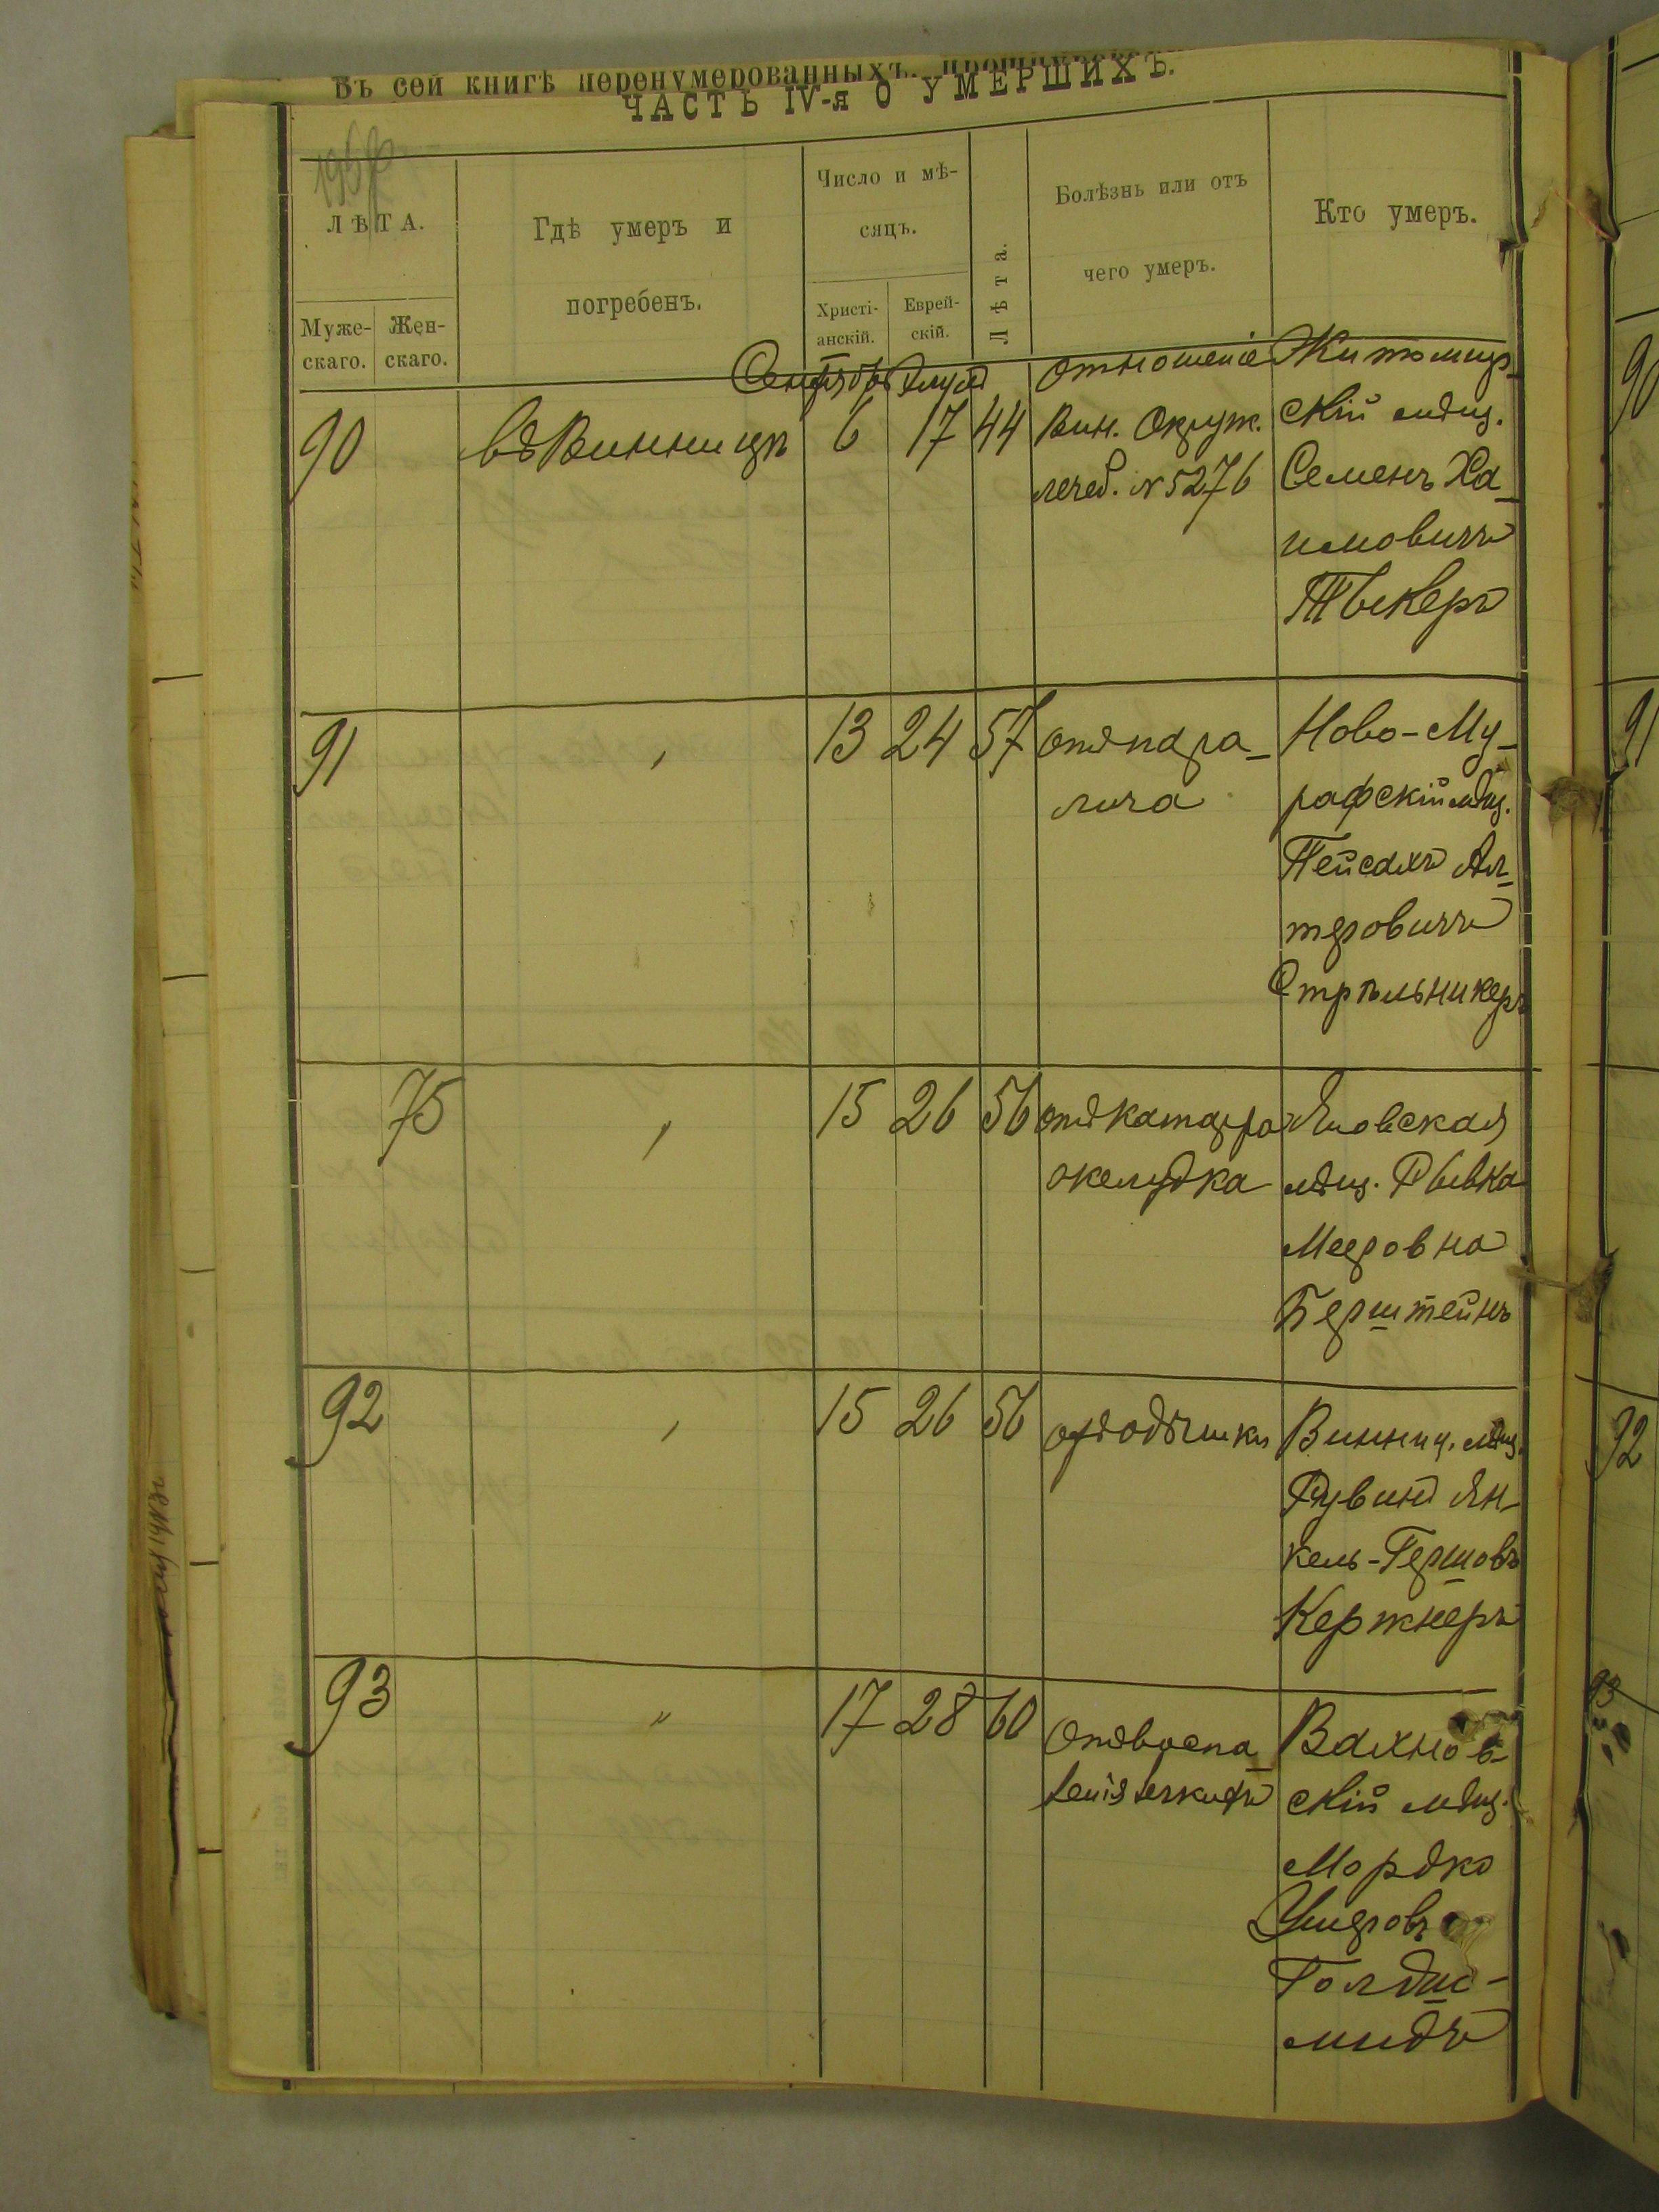 Въ сей книгѣ перенумерованныхъ,
ЧАСТЬ IV-я О УМЕРШИХЪ.
ЛѢТА.
Муже-
скаго.
Жен-
скаго.
Гдѣ умеръ и
погребенъ.
Число и мѣ-
сяцъ.
Христі-
анскій.
Еврей-
скій.
Лѣта.
Болѣзнь или отъ
чего умеръ.
Кто умеръ.
Сентябрь Элулъ
90
въ Винницѣ
6 17 44
Отношеніе
Вин. Окруж.
лечеб. № 5276
Житомир-
скій мѣщ.
Семенъ Ха-
имовичъ
Тывкеръ
91
"
13 24 57
отъ пара-
лича
Ново-Му-
рафскій мѣщ.
Пейсахъ Ал-
теровичъ
Стрѣльникеръ
75
"
15 26 56
отъ катарра
желудка
Яновская
мѣщ. Рывка
Мееровна
Берштейнъ
92
"
15 26 56
отъ одышки
Винниц. мѣщ.
Рувинъ Ян-
кель-Гершовъ
Кержнеръ
93
"
17 28 60
Отъ воспа-
ленія легкихъ
Вахнов-
скій мѣщ.
Мордко
Ушеровъ
Голдш-
мидъ
90
91
92
93